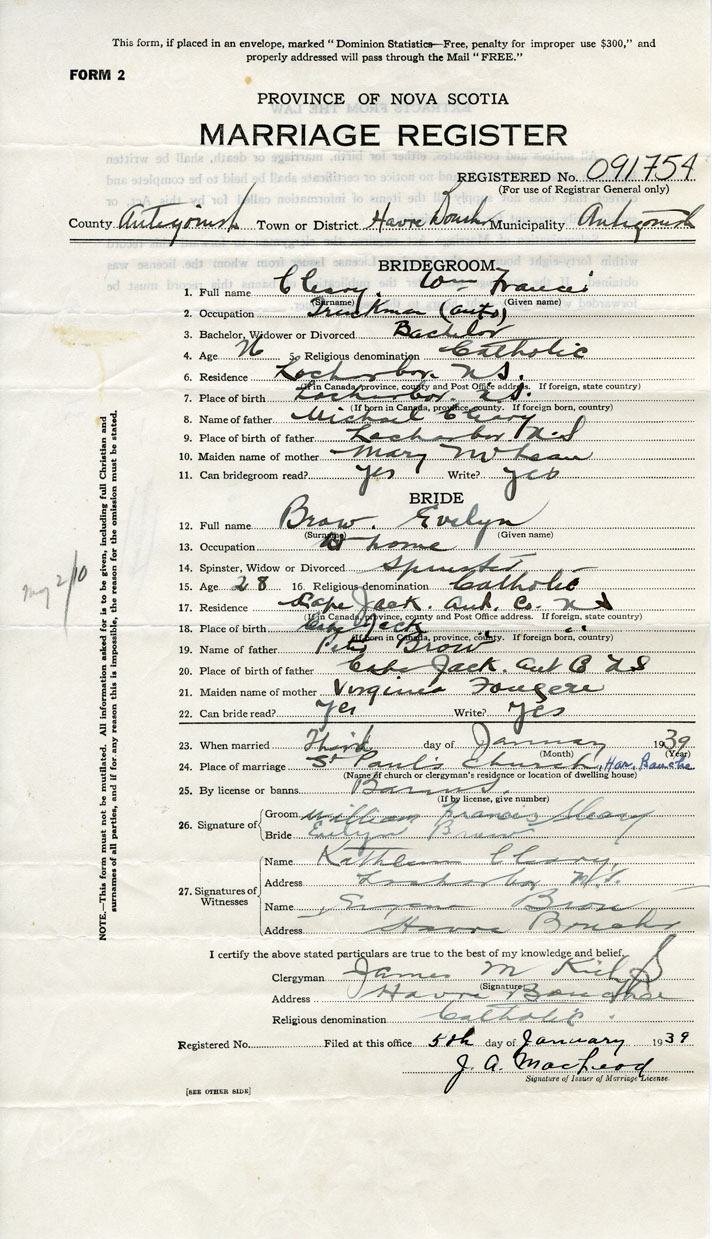 This form, if placed in an envelope, marked "Dominion Statistics—Free, penalty for improper use $300," and
properly addressed will pass through the Mail "FREE."
FORM 2
PROVINCE OF NOVA SCOTIA
MARRIAGE REGISTER
REGISTERED No. 091754
(For use of Registrar General only)
County Antigonish Town or District Havre Bouche Municipality Antigonish
BRIDEGROOM
1. Full name Cleary. Wm Francis
(Surname) (Given name)
2. Occupation Truckman (auto)
3. Bachelor, Widower or Divorced Bachelor
4. Age 26 5. Religious denomination Catholic
6. Residence Locharbor. N.S.
(If in Canada, province, county and Post Office address. If foreign, state country)
7. Place of birth Locharbor. N.S.
(If born in Canada, province, county. If foreign born, country)
8. Name of father Michael Cleary
9. Place of birth of father Locharbor N.S
10. Maiden name of mother Mary
11. Can bridegroom read? Yes Write? Yes
BRIDE
12. Full name Brow. Evelyn
(Surname) (Given name)
13. Occupation At home
14. Spinster, Widow or Divorced Spinster
15. Age 28 16. Religious denomination Catholic
17. Residence Cape Jack. Ant. Co. N S
(If in Canada, province, county and Post Office address. If foreign, state country)
18. Place of birth Cape Jack
(If born in Canada, province, county. If foreign born, country)
19. Name of father Peter Brow
20. Place of birth of father Cape Jack. Ant Co N S
21. Maiden name of mother Virginia Fougere
22. Can bride read? Yes Write? Yes
23. When married Third day of January 1939
(Month) (Year)
24. Place of marriage St Paul's Church, Har. Bouche
(Name of church or clergyman's residence or location of dwelling house)
25. By license or banns Banns.
(If by license, give number)
26. Signature of
Groom William Francis Cleary
Bride Evelyn Brow
27. Signatures of Witnesses
Name Kathleen Cleary
Address Locharbor N.S.
Name Brow
Address Havre Bouche
I certify the above stated particulars are true to the best of my knowledge and belief.
Clergyman James M
(Signature)
Address Havre Bouche
Religious denomination Catholic.
Registered No. Filed at this office 5th day of January 1939
J. A. MacLeod
Signature of Issuer of Marriage License.
[SEE OTHER SIDE]
NOTE.—This form must not be mutilated. All information asked for is to be given, including full Christian and
surnames of all parties, and if for any reason this is impossible, the reason for the omission must be stated.
May 2/10